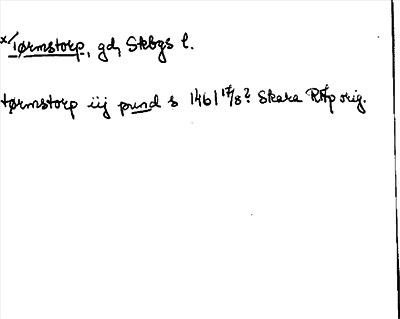 ×Tørmstorp, gd, Skbgs l.
tørmstorp iij pund s 1461 17/8? Skara RAp orig.